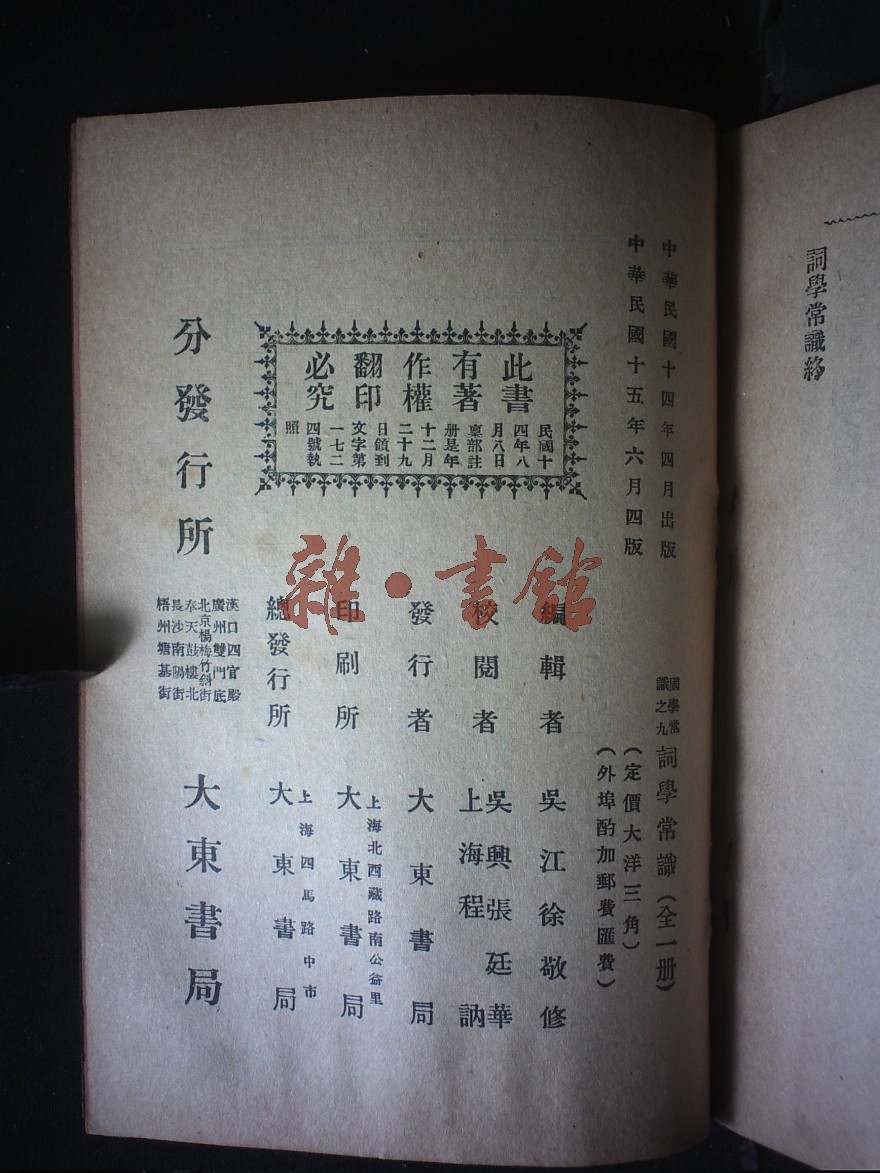 詞學常識終
中華民國十四年四月出版
中華民國十五年六月四版
國學常
識之九
詞學常識(全一册)
(定價大洋三角)
(外埠酌加郵費匯費)
此書
有著
作權
翻印
必究
民國十
四年八
月八日
稟部註
册是年
十二月
二十九
日領到
文字第
一七二
四號執
照
編輯者 吳江徐敬修
校閱者 吳興張廷華
上海程訥
發行者 大東書局
印刷所 上海北西藏路南公益里
大東書局
總發行所 上海四馬路中市
大東書局
分發行所
漢口四官殿
廣州雙門底
北京楊梅竹斜街
奉天鼓樓北
長沙南陽街
梧州塘基街
大東書局
雜·書館